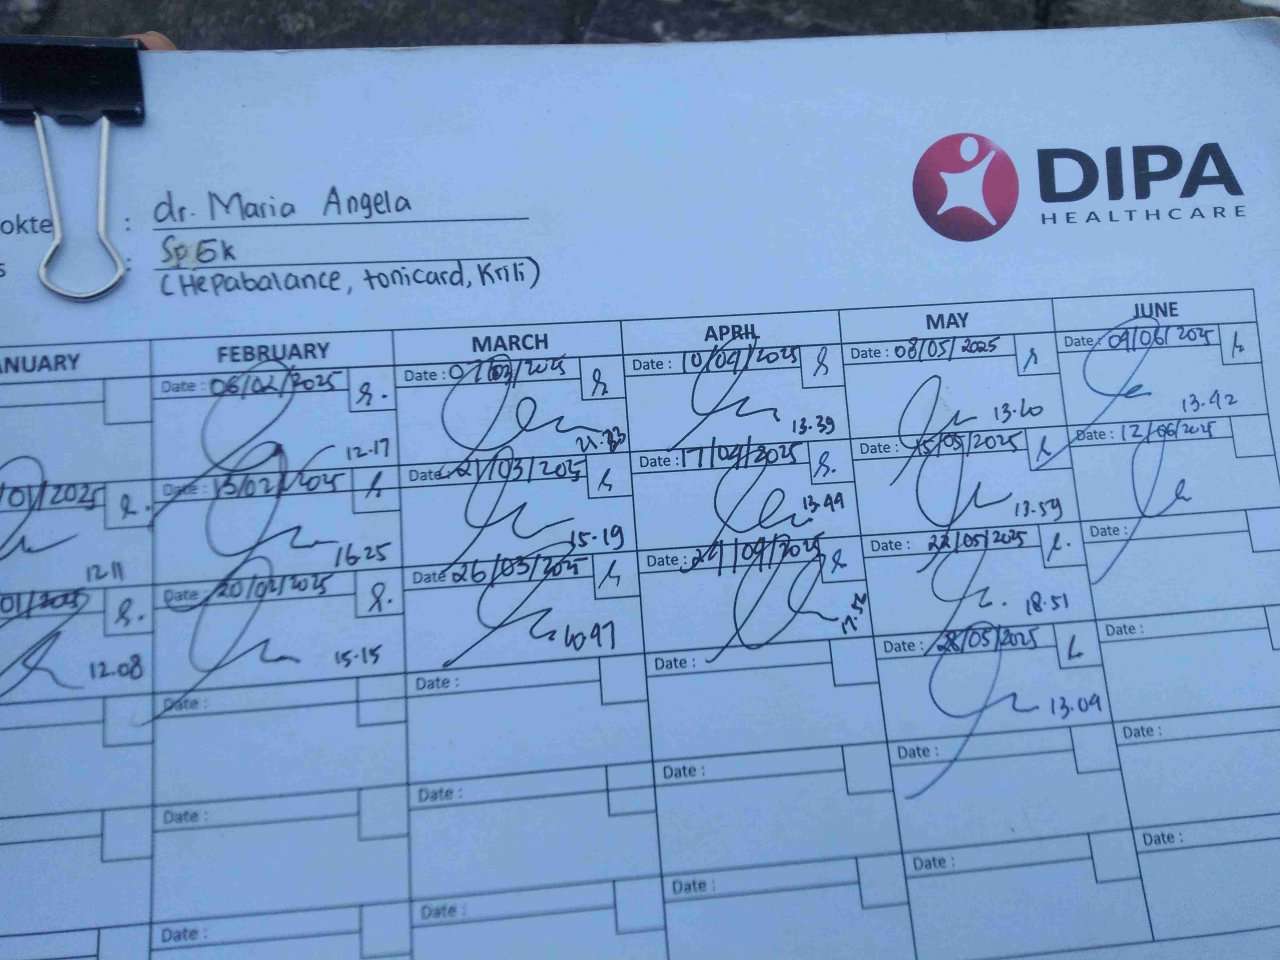 DIPA
HEALTHCARE
okte : dr. Maria Angela
s : Sp5k
(Hepabalance, tonicard, Krili)
ANUARY FEBRUARY MARCH APRIL MAY JUNE
Date : 06/02/2025 Date : 10/04/2025 Date : 08/05/2025 Date : 04/06/2025
12.17 21.33 13.39 13.20 13.42
/01/2025 Date : 13/02/2025 Date : 21/03/2025 Date : 17/04/2025 Date : 15/05/2025 Date : 12/06/2025
12.11 16.25 15-19 13.44 13.59
01/2025 Date : 20/02/2025 Date : 26/03/2025 Date : 24/04/2025 Date : 22/05/2025 Date :
12.08 15-15 10.47 17.52 18.51
Date : Date : Date : Date : 28/05/2025 Date :
13.09
Date : Date : Date : Date : Date :
Date : Date : Date : Date : Date :